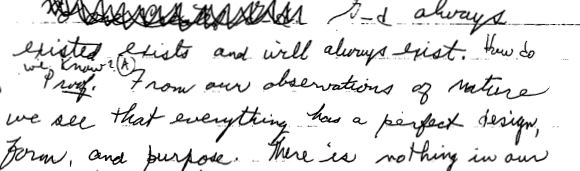 G-d always
existed exists and will always exist. How do
we know? (A)
Proof. From our observations of nature
we see that everything has a perfect design,
form, and purpose. There is nothing in our